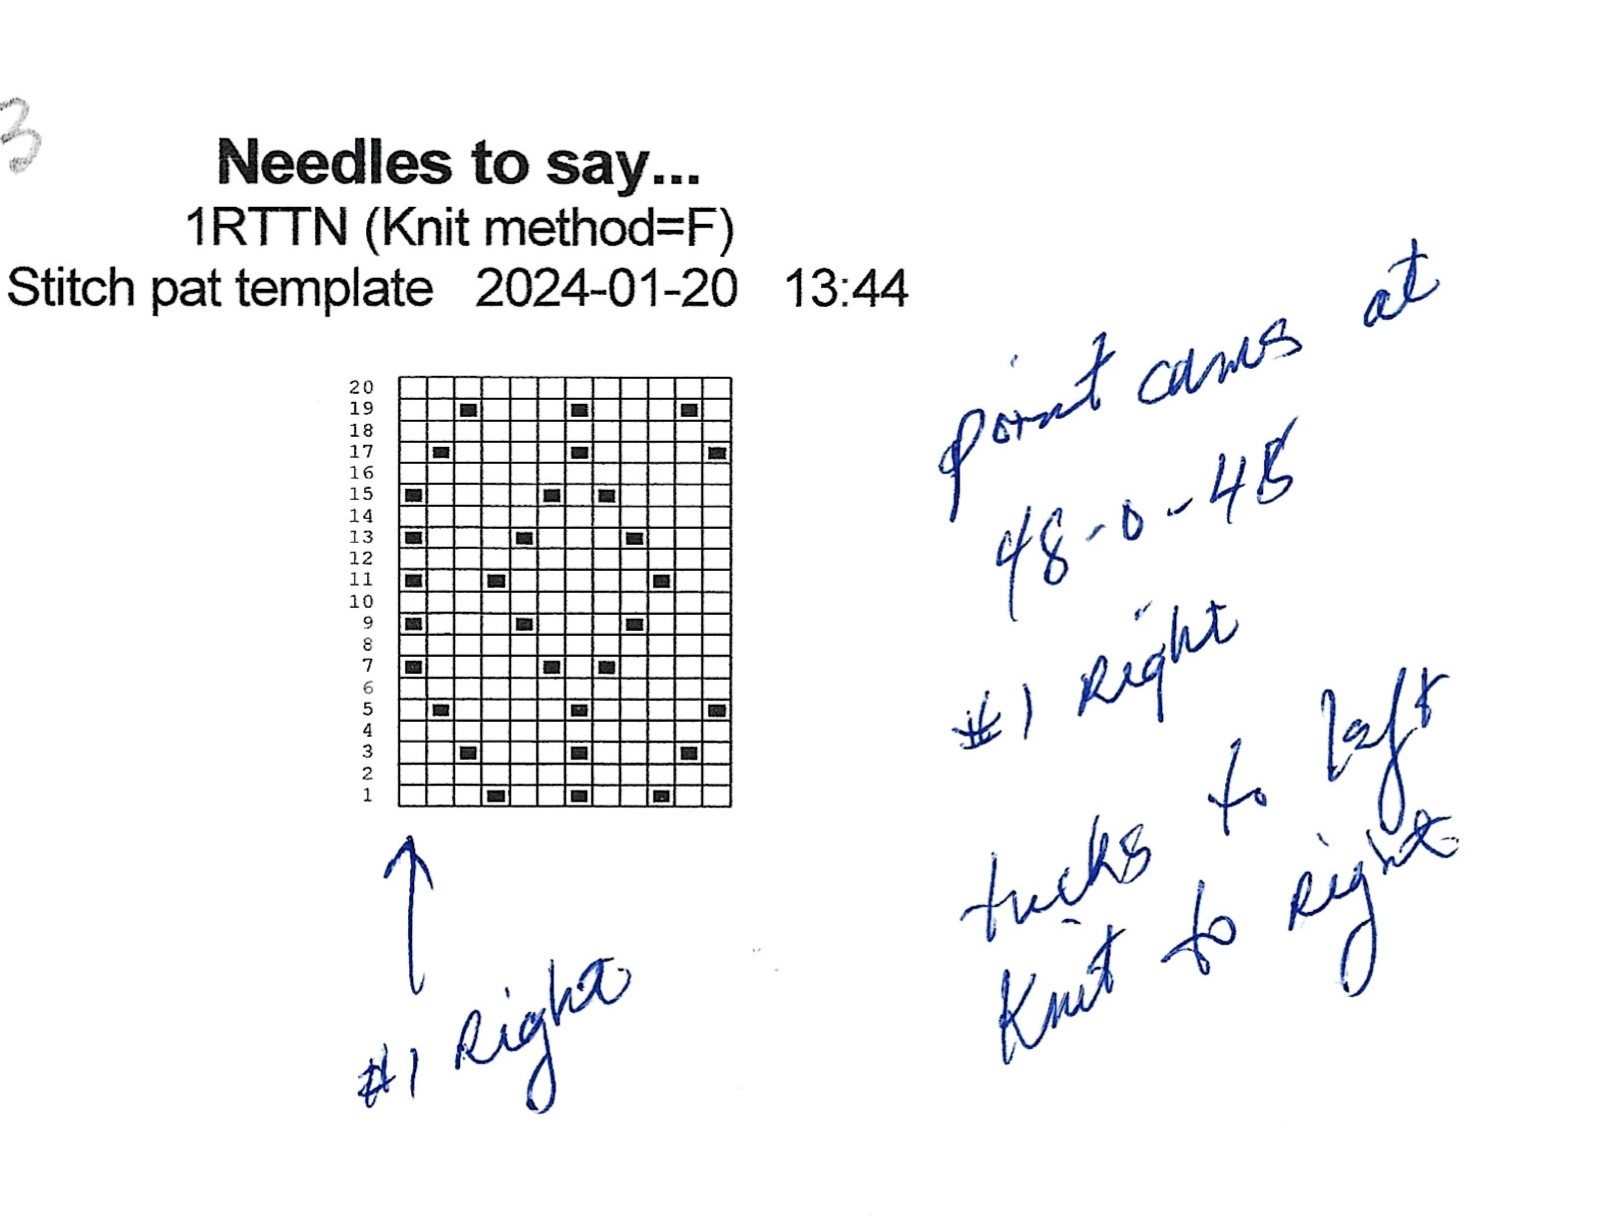 3
Needles to say...
1RTTN (Knit method=F)
Stitch pat template 2024-01-20 13:44
20
19
18
17
16
15
14
13
12
11
10
9
8
7
6
5
4
3
2
1
#1 Right
point cams at
48-0-48
#1 Right
tucks to left
Knit to right